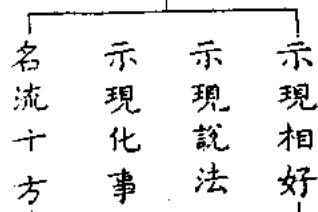 示現相好
示現說法
示現化事
名流十方